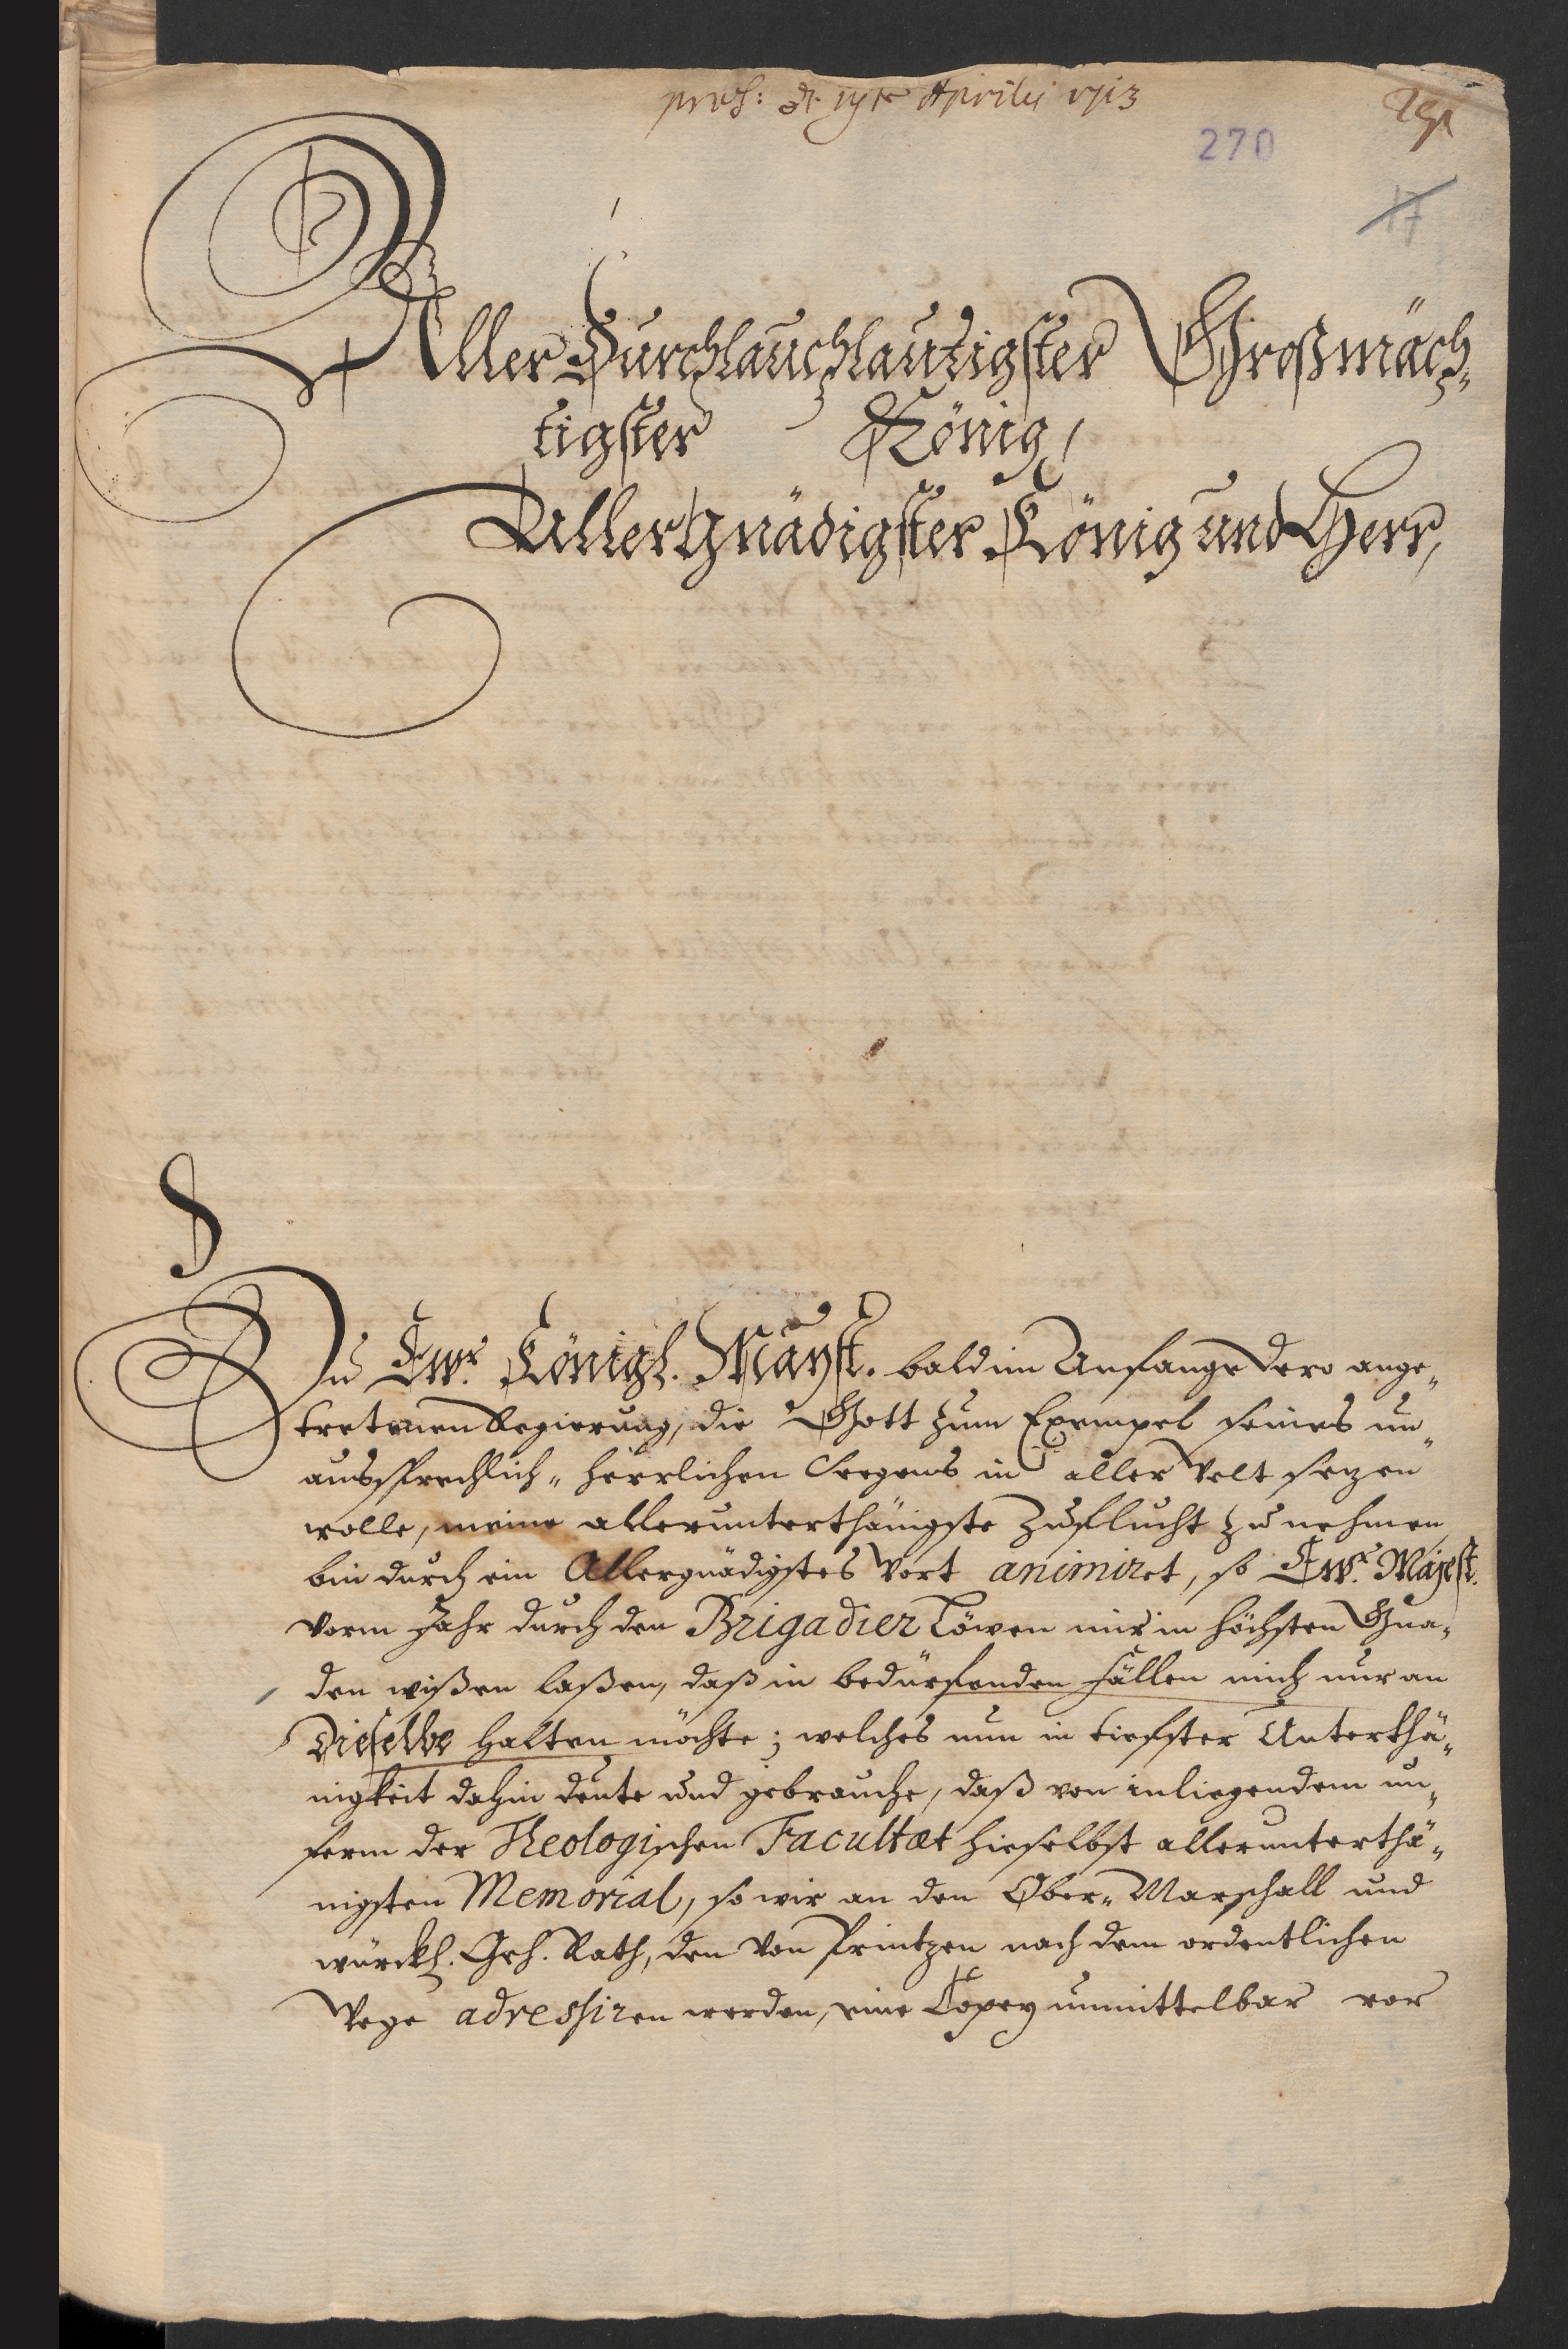 præs: d. 19te Aprilis 1713
270
17
Aller Durchlauchlautigster Großmäch„
tigster König,
Allergnädigster König und Herr,
Zu Ewr. Königl. Mayst. bald im Anfange dero ange„
tretenen Regierung, die Gott zum Exempel seines un„
aussprechlich„ herrlichen Seegens in aller Welt setzen
wolle, meine allerunterthänigste Zuflucht zu nehmen,
bin durch ein Allergnädigstes Wort animiret, so Ewr. Majest.
vorm Jahr durch den Brigadier Löwen mir in höchsten Gna„
den wißen laßen, daß in bedürfenden Fällen mich nur an
Dieselbe halten möchte; welches nun in tiefster Unterthä„
nigkeit dahin deute und gebrauche, daß von inliegendem un„
serm der Theologischen Facultæt hieselbst allerunterthä„
nigsten Memorial, so wir an den Ober„ Marschall und
würckl. Geh. Rath, den von Printzen nach dem ordentlichen
Wege adressiren werden, eine Copey unmittelbar vor